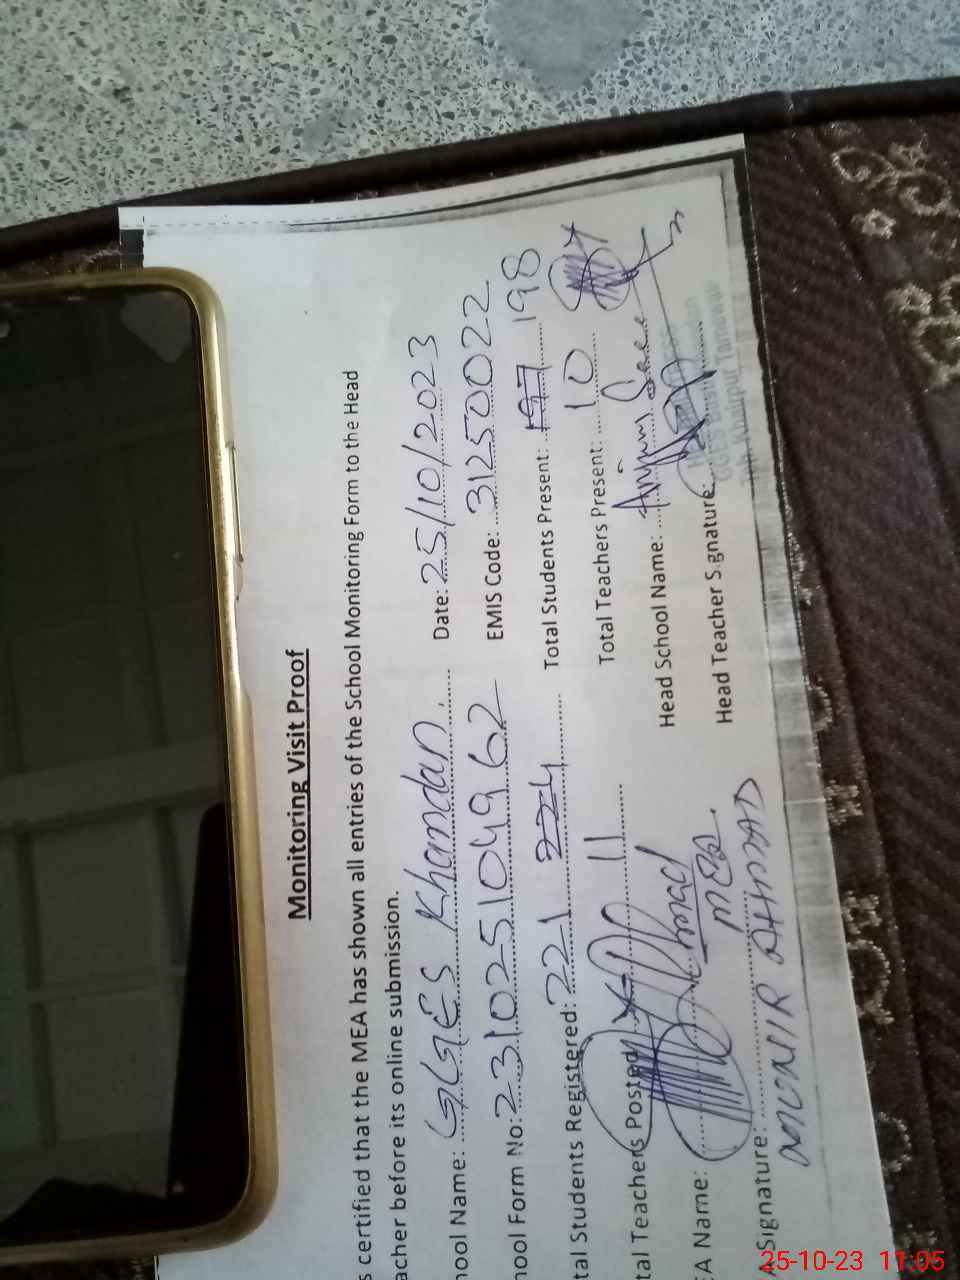 Monitoring Visit Proof
s certified that the MEA has shown all entries of the School Monitoring Form to the Head
acher before its online submission.
hool Name: GGES Khamdan. Date: 25/10/2023
hool Form No: 231025104962 EMIS Code: 31250022
tal Students Registered: 221 224 Total Students Present: 197 198
tal Teachers Posted 11 Total Teachers Present: 10
A Name: Ahmad Head School Name: Anjum
MEA
Signature: Head Teacher S.gnature:
MUNIR AHMAD
Teh. Khairpur Tamewali
25-10-23 11:05